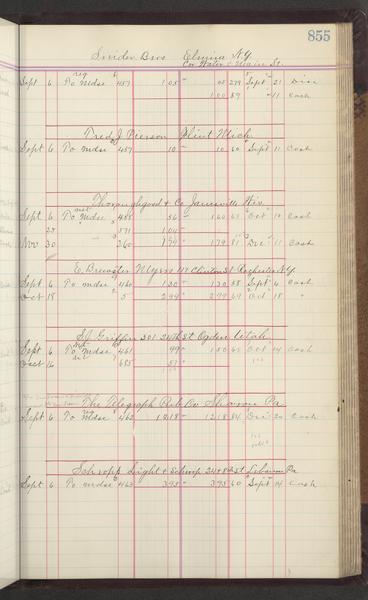 855
Snider Bros Elmira N.Y.
Cor Water & St.
Sept 6 To mdse 457 1.05 05 279 Sept 21 Disc
1.00 89 " 11 Cash
Fred J Pierson Flint Mich
Sept 6 To mdse 457 10 10 60 Sept 11 Cash
Thoroughgood & Co Janesville Wis
Sept 6 To mdse 458 56 1.60 61 Oct 10 Cash
28 " 571 1.04
Nov 30 " 260 1.79 1.79 81 Dec 11 Cash
E. Brewster Myers 117 Clinton St Rochester N.Y.
Sept 6 To mdse 460 1.30 1.30 58 Sept 6 Cash
Oct 18 " 5 2.99 2.99 69 Oct 18 "
S.J. Griffin 301 24th St Ogden Utah
Sept 6 To mdse 461 99 1.50 Oct 14 Cash
Oct 16 685 51
The Telegraph Pub Co Sharon Pa
Sept 6 To mdse 462 12.18 12.18 84 Dec 20 Cash
Schropp Light & 24 & 8th St Lebanon Pa
Sept 6 To mdse 463 3.95 3.95 60 Sept 14 Cash